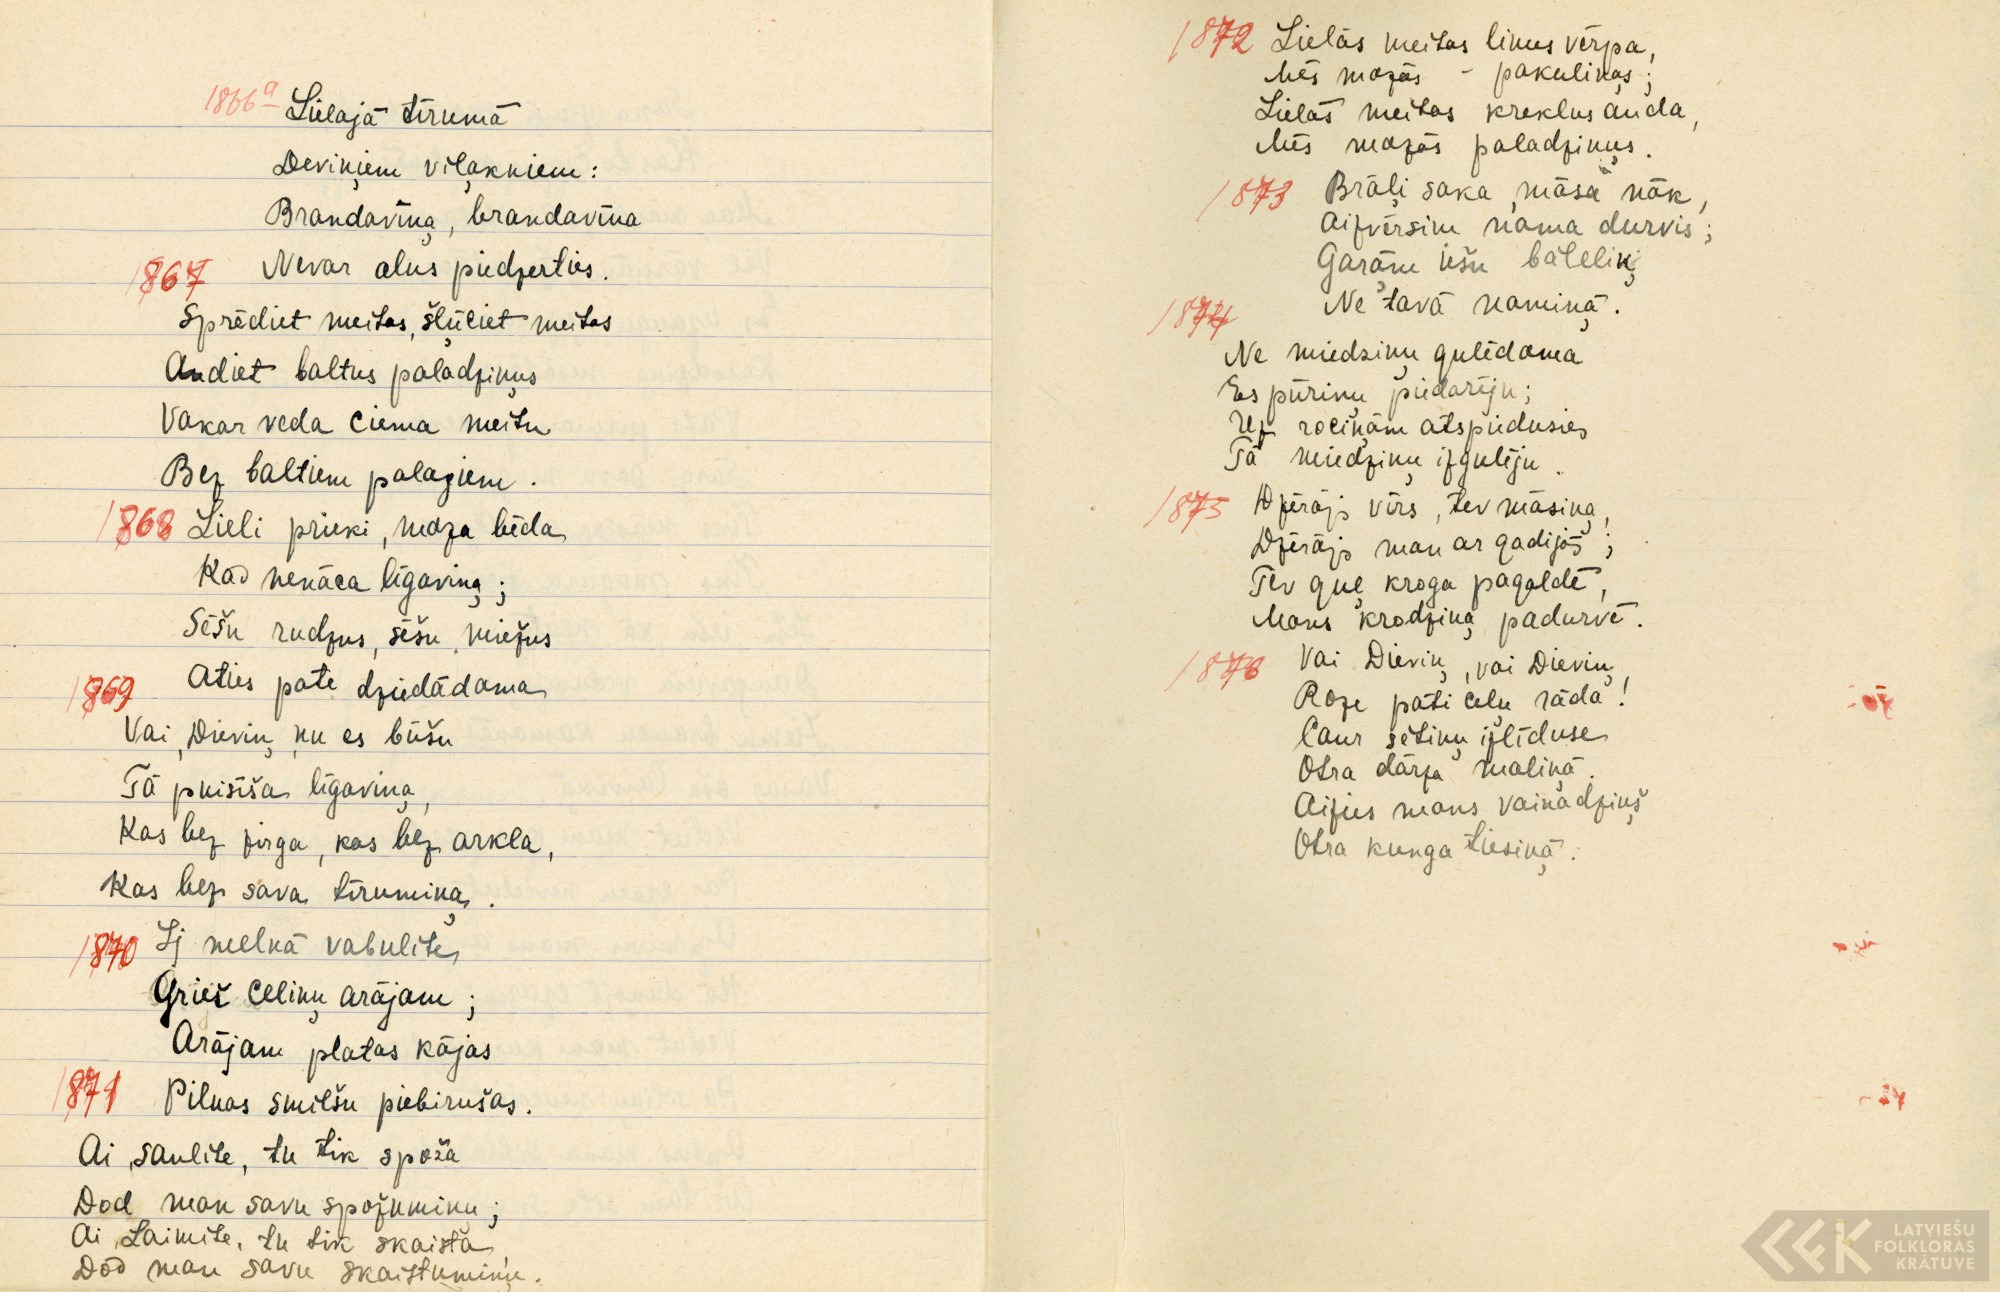 1866a Lielajā tīrumā
Deviņiem viļakņiem:
Brandavīņa, brandavīna
Nevar alus piedzerties.
1867
Sprēdiet meitas, šķūciet meitas
Audiet baltus paladziņus
Vakar veda ciema meitu
Bez baltiem palagiem.
1868 Lieli prieki, maza bēda
Kad nenāca līgaviņa;
Sēšu rudzus, sēšu miežus
Aties pate dziedādama
1869
Vai, Dieviņ, nu es būšu
Tā puisīša līgaviņa,
Kas bez zirga, kas bez arkla,
Kas bez sava tīrumiņa.
1870 Ij melnā vabulīte
Griež celiņu arājam;
Arājam platas kājas
Pilnas smilšu piebirušas.
1871
Ai, saulīte, tu tik spoža
Dod man savu spožumiņu;
Ai, Laimīte, tu tik skaista,
Dod man savu skaistumiņu.
1872 Lielās meitas linus vērpa,
Mēs mazās - pakuliņas;
Lielās meitas kreklus auda,
Mēs mazās paladziņus.
1873 Brāļi saka, māsa nāk,
Aizvērsim nama durvis;
Garām iešu bāleliņ,
Ne tavā namiņā.
1874
Ne miedziņu gulēdama
Es pūriņu piedarīju;
Uz rociņām atspiedusies
Tā miedziņu izgulēju.
1875 Dzērājs vīrs, tev māsiņa,
Dzērājs man ar gadījās;
Tev guļ kroga pagaldē,
Mans krodziņa padurvē.
1876 Vai Dieviņ, vai Dieviņ,
Roze pati ceļu rāda!
Caur sētiņu izlīduse
Otra dārza maliņā.
Aizies mans vaiņadziņš
Otra kunga tiesiņā.
LATVIEŠU
FOLKLORAS
KRĀTUVE